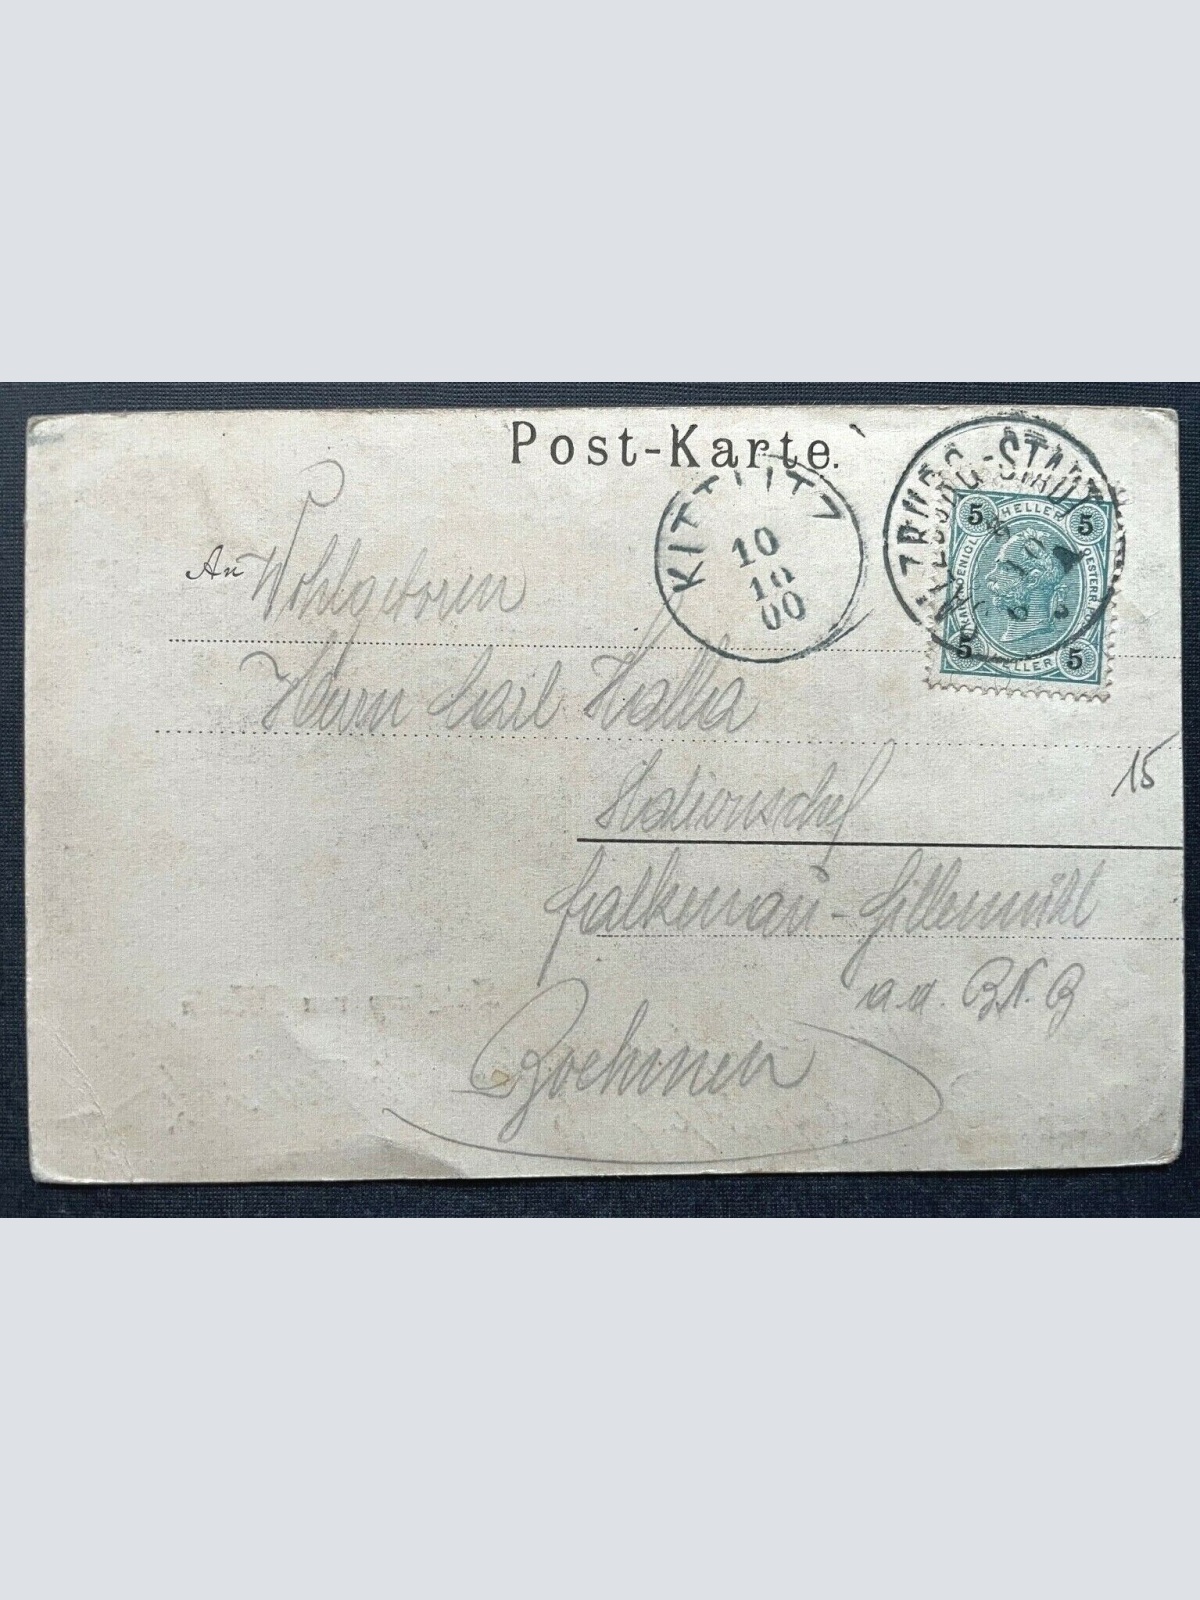 Post-Karte.
KITTLITZ
10
10
00
SALZBURG-STADT
5 HELLER 5
KAIS. KOENIGL. OESTERR. POST
5 HELLER 5
An Wohlgeboren
Herrn Carl Halla
15
Stationschef
Falkenau-Hillemühl
a.d. B.N.B
Boehmen